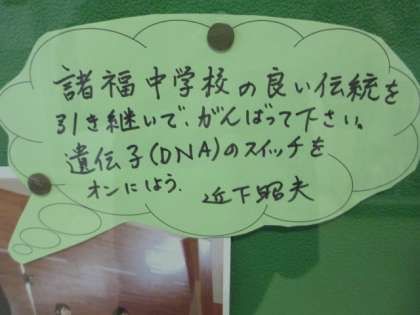 諸福中学校の良い伝統を
引き継いで、がんばって下さい。
遺伝子(DNA)のスイッチを
オンにしよう. 近下昭夫